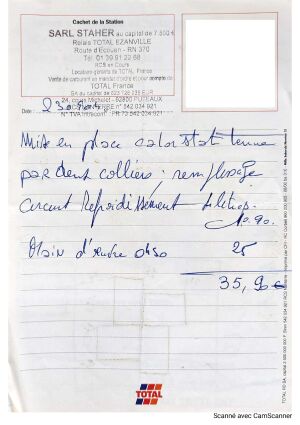 Cachet de la Station
SARL STAHER au capital de 7.500 €
Relais TOTAL EZANVILLE
Route d'Ecouen - RN 370
Tél. 01 39 91 22 68
RCS en Cours
Location-gérants de TOTAL France
Vente de carburant en mandat d'ordre et pour compte de
TOTAL France
24, cours Michelet - 92800 PUTEAUX
542 034 921
N° TVA Intracom : FR 73 542 034 921
Date :
Mise en place calorstat tenue
par deux colliers : remplissage
circuit Refroidissement
10.90
Main d'œuvre
25
35,90 €
TOTAL
Scanné avec CamScanner